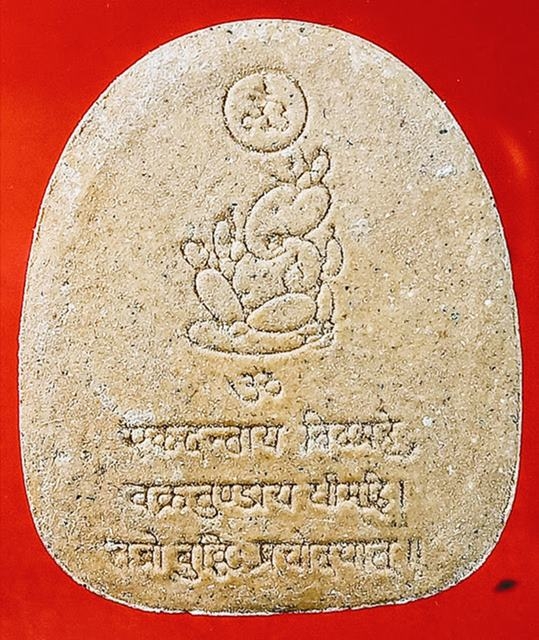 ॐ
एकदन्ताय विद्महे,
वक्रतुण्डाय धीमहि।
तन्नो बुद्धिः प्रचोदयात॥